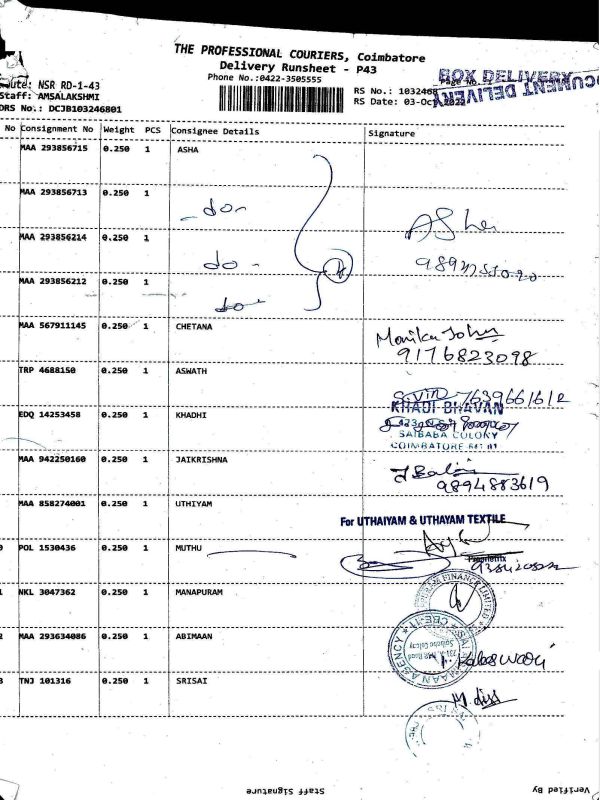 THE PROFESSIONAL COURIERS, Coimbatore
Delivery Runsheet - P43
Phone No.:0422-3505555
BOX DELIVERY
DOCUMENT DELIVERY
Route: NSR RD-1-43
Staff: AMSALAKSHMI
DRS No.: DCJB103246801
RS No.: 1032468
RS Date: 03-Oct-2022
No Consignment No Weight PCS Consignee Details Signature
MAA 293856715 0.250 1 ASHA
MAA 293856713 0.250 1 -do-
MAA 293856214 0.250 1 do - Asha
MAA 293856212 0.250 1 do
MAA 567911145 0.250 1 CHETANA Monika John
9176823098
TRP 4688150 0.250 1 ASWATH 7639661612
EDQ 14253458 0.250 1 KHADHI KHADI BHAVAN
SAIBABA COLONY
COIMBATORE
MAA 942250160 0.250 1 JAIKRISHNA
9894883619
MAA 858274001 0.250 1 UTHIYAM For UTHAIYAM & UTHAYAM TEXTILE
Proprietrix
POL 1530436 0.250 1 MUTHU
NKL 3047362 0.250 1 MANAPURAM FINANCE LIMITED
MAA 293634086 0.250 1 ABIMAAN AGENCY
TNJ 101316 0.250 1 SRISAI
Staff Signature
Verified By